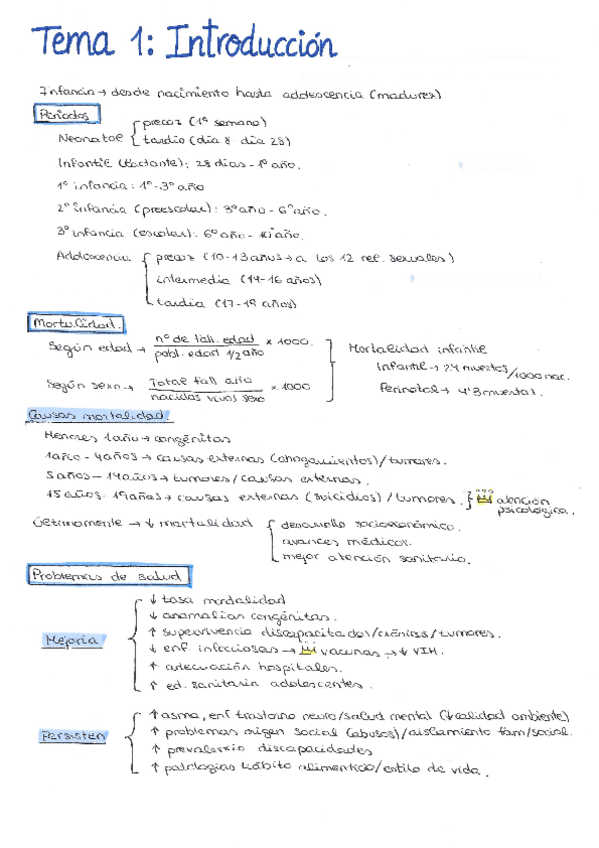 Tema 1: Introducción
Infancia → desde nacimiento hasta adolescencia (madurez)
Periodos
Neonatal { precoz (1ª semana)
tardío (día 8 día 28)
Infantil (lactante): 28 días - 1º año.
1ª infancia: 1º-3º año
2ª infancia (preescolar): 3º año - 6º año.
3ª infancia (escolar): 6º año - año.
Adolescencia { precoz (10-13 años → a los 12 rel. sexuales)
intermedia (14-16 años)
tardía (17-19 años)
Mortalidad.
Según edad → nº de fall. edad / pobl. edad 1/2 año × 1000.
Según sexo → Total fall año / nacidos vivos sexo × 1000
Mortalidad infantil
Infantil → 2'4 muertos/1000 nac.
Perinatal → 4'3 muertos/.
Causas mortalidad.
Menores 1 año → congénitas
1 año - 4 años → causas externas (ahogamientos)/tumores.
5 años - 14 años → tumores/causas externas.
15 años - 19 años → causas externas (suicidios)/tumores. } atención psicológica.
Últimamente → ↓ mortalidad { desarrollo socioeconómico.
avances médicos.
mejor atención sanitaria.
Problemas de salud
Mejoría
↓ tasa mortalidad
↓ anomalías congénitas.
↑ supervivencia discapacitados/crónicos/tumores.
↓ enf. infecciosas → vacunas → ↓ VIH.
↑ adecuación hospitales.
↑ ed. sanitaria adolescentes.
Persisten
↑ asma, enf trastorno neuro/salud mental (↓ calidad ambiente)
↑ problemas origen social (abusos)/aislamiento fam/social.
↑ prevalencia discapacidades
↑ patologías hábito alimenticio/estilo de vida.